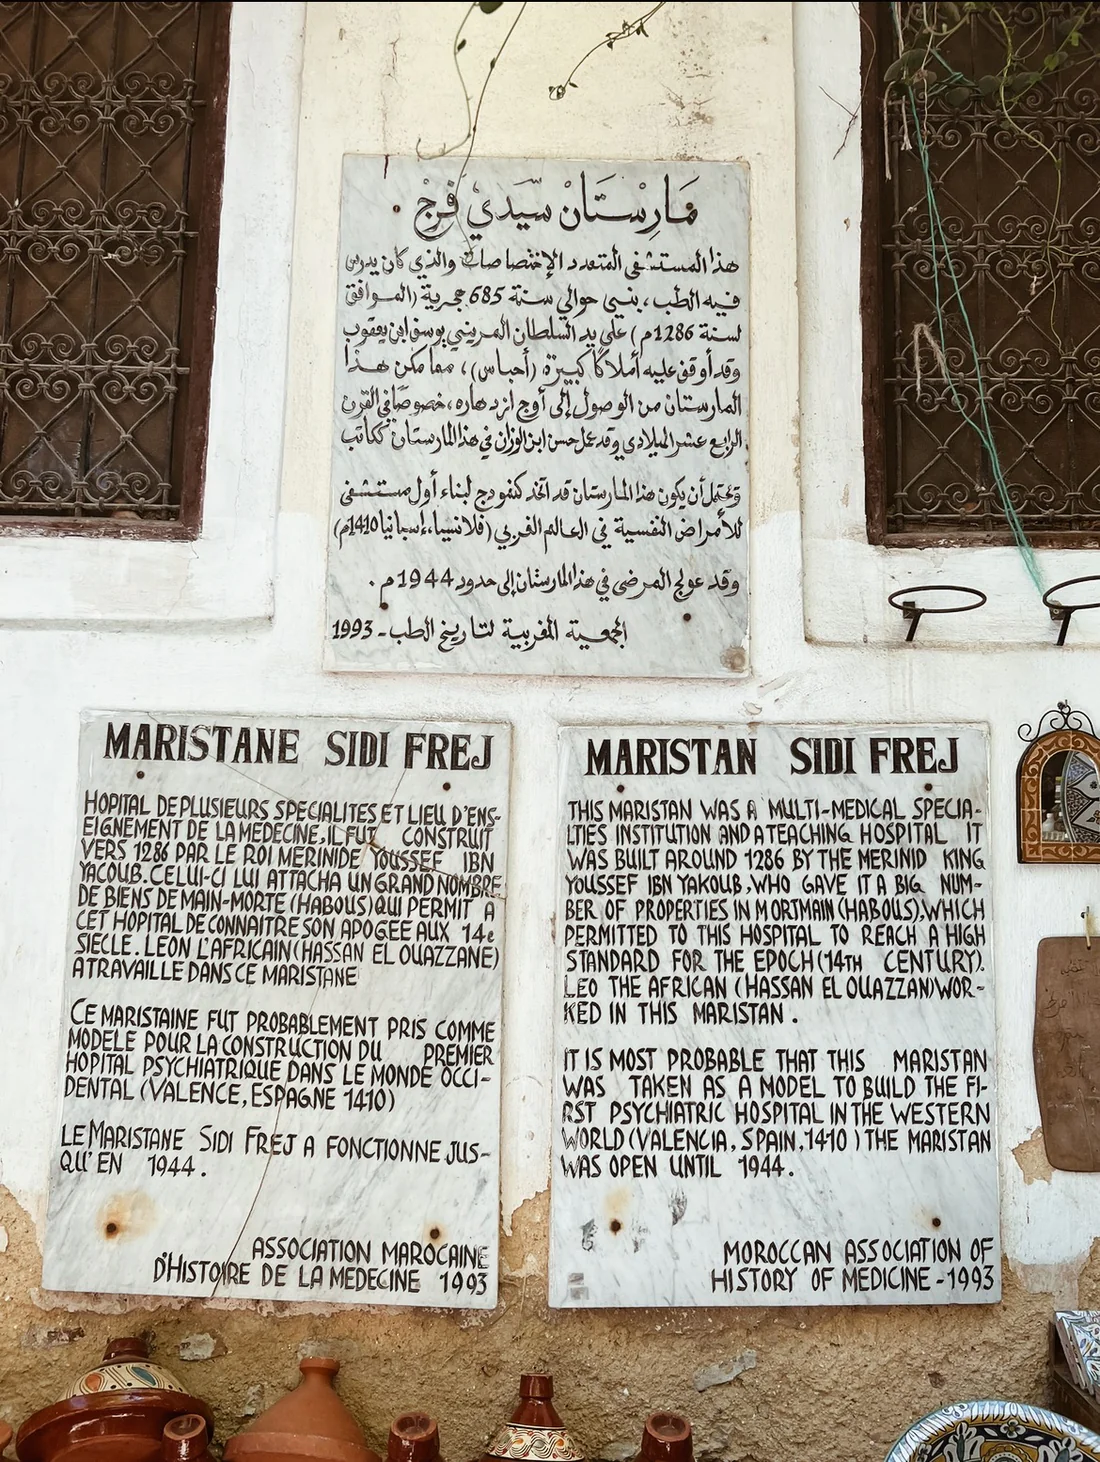 مَارِسْتَانْ سيّدي فَرِجْ
هذا المستشفى المتعدد الإختصاصات والذي كان يدرس
فيه الطب، بني حوالي سنة 685 هجرية (الموافق
لسنة 1286م) على يد السلطان المريني يوسف ابن يعقوب
وقد أوقف عليه أملاكًا كبيرة (أحباس)، مما مكن هذا
المارستان من الوصول إلى أوج ازدهاره، خصوصًا في القرن
الرابع عشر الميلادي وقد عمل حسن ابن الوزان في هذا المارستان ككاتب
ويحتمل أن يكون هذا المارستان قد اتخذ كنموذج لبناء أول مستشفى
للأمراض النفسية في العالم الغربي (فلانسيا، إسبانيا 1410م)
وقد عولج المرضى في هذا المارستان إلى حدود 1944 م .
الجمعية المغربية لتاريخ الطب - 1993
MARISTANE SIDI FREJ
HOPITAL DE PLUSIEURS SPECIALITES ET LIEU D'ENS-
EIGNEMENT DE LA MEDECINE, IL FUT CONSTRUIT
VERS 1286 PAR LE ROI MERINIDE YOUSSEF IBN
YACOUB. CELUI-CI LUI ATTACHA UN GRAND NOMBRE
DE BIENS DE MAIN-MORTE (HABOUS) QUI PERMIT A
CET HOPITAL DE CONNAITRE SON APOGEE AUX 14e
SIECLE. LEON L'AFRICAIN (HASSAN EL OUAZZANE)
A TRAVAILLE DANS CE MARISTANE
CE MARISTAINE FUT PROBABLEMENT PRIS COMME
MODELE POUR LA CONSTRUCTION DU PREMIER
HOPITAL PSYCHIATRIQUE DANS LE MONDE OCCI-
DENTAL (VALENCE, ESPAGNE 1410)
LE MARISTANE SIDI FREJ A FONCTIONNE JUS-
QU'EN 1944.
ASSOCIATION MAROCAINE
D'HISTOIRE DE LA MEDECINE 1993
MARISTAN SIDI FREJ
THIS MARISTAN WAS A MULTI-MEDICAL SPECIA-
LTIES INSTITUTION AND A TEACHING HOSPITAL IT
WAS BUILT AROUND 1286 BY THE MERINID KING
YOUSSEF IBN YAKOUB, WHO GAVE IT A BIG NUM-
BER OF PROPERTIES IN MORTMAIN (HABOUS), WHICH
PERMITTED TO THIS HOSPITAL TO REACH A HIGH
STANDARD FOR THE EPOCH (14TH CENTURY).
LEO THE AFRICAN (HASSAN EL OUAZZAN) WOR-
KED IN THIS MARISTAN.
IT IS MOST PROBABLE THAT THIS MARISTAN
WAS TAKEN AS A MODEL TO BUILD THE FI-
RST PSYCHIATRIC HOSPITAL IN THE WESTERN
WORLD (VALENCIA, SPAIN, 1410) THE MARISTAN
WAS OPEN UNTIL 1944.
MOROCCAN ASSOCIATION OF
HISTORY OF MEDICINE - 1993